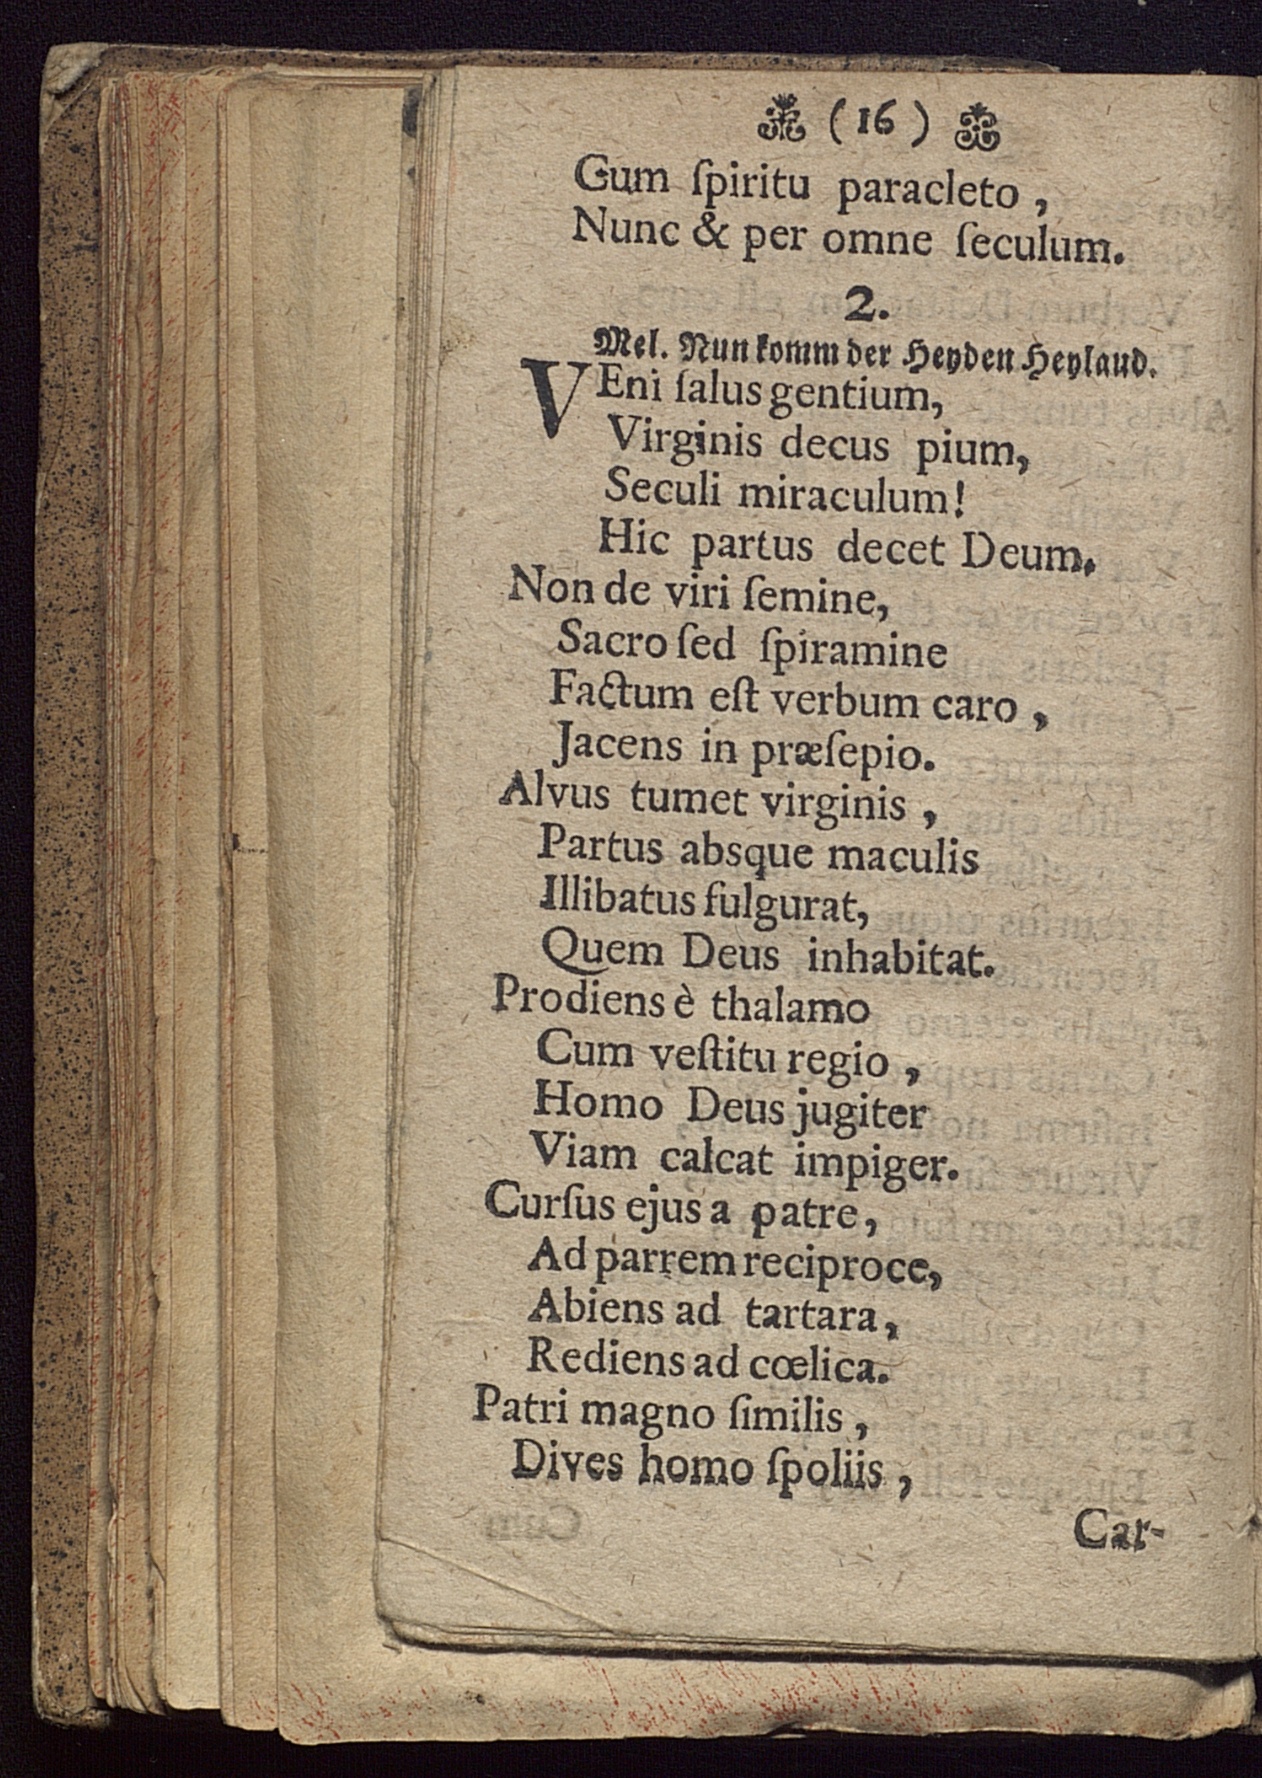 (16)
Gum ſpiritu paracleto,
Nunc & per omne ſeculum.
2.
Mel. Nun komm der Heyden Heyland.
VEni ſalus gentium,
Virginis decus pium,
Seculi miraculum!
Hic partus decet Deum.
Non de viri ſemine,
Sacro ſed ſpiramine
Factum eſt verbum caro,
Jacens in præſepio.
Alvus tumet virginis,
Partus absque maculis
Illibatus fulgurat,
Quem Deus inhabitat.
Prodiens è thalamo
Cum veſtitu regio,
Homo Deus jugiter
Viam calcat impiger.
Curſus ejus a patre,
Ad parrem reciproce,
Abiens ad tartara,
Rediens ad cœlica.
Patri magno ſimilis,
Dives homo ſpoliis,
Car-